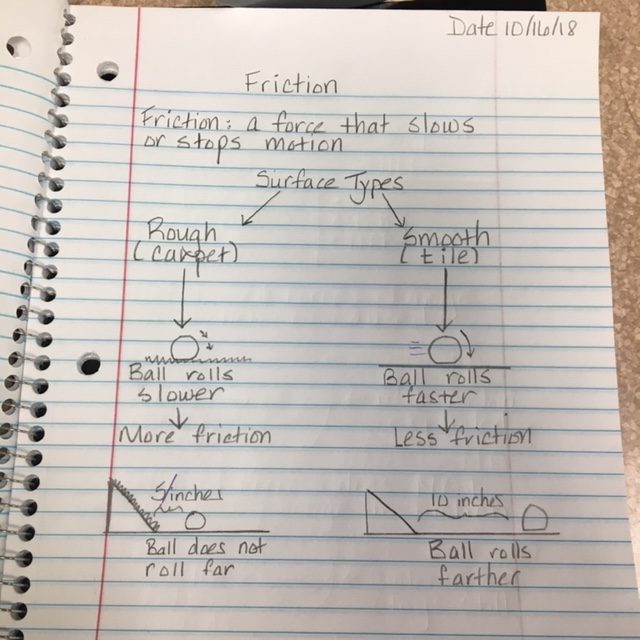 Date 10/16/18
Friction
Friction: a force that slows
or stops motion
Surface Types
Rough
(carpet)
Smooth
(tile)
Ball rolls
slower
Ball rolls
faster
More friction
Less friction
5 inches
10 inches
Ball does not
roll far
Ball rolls
farther